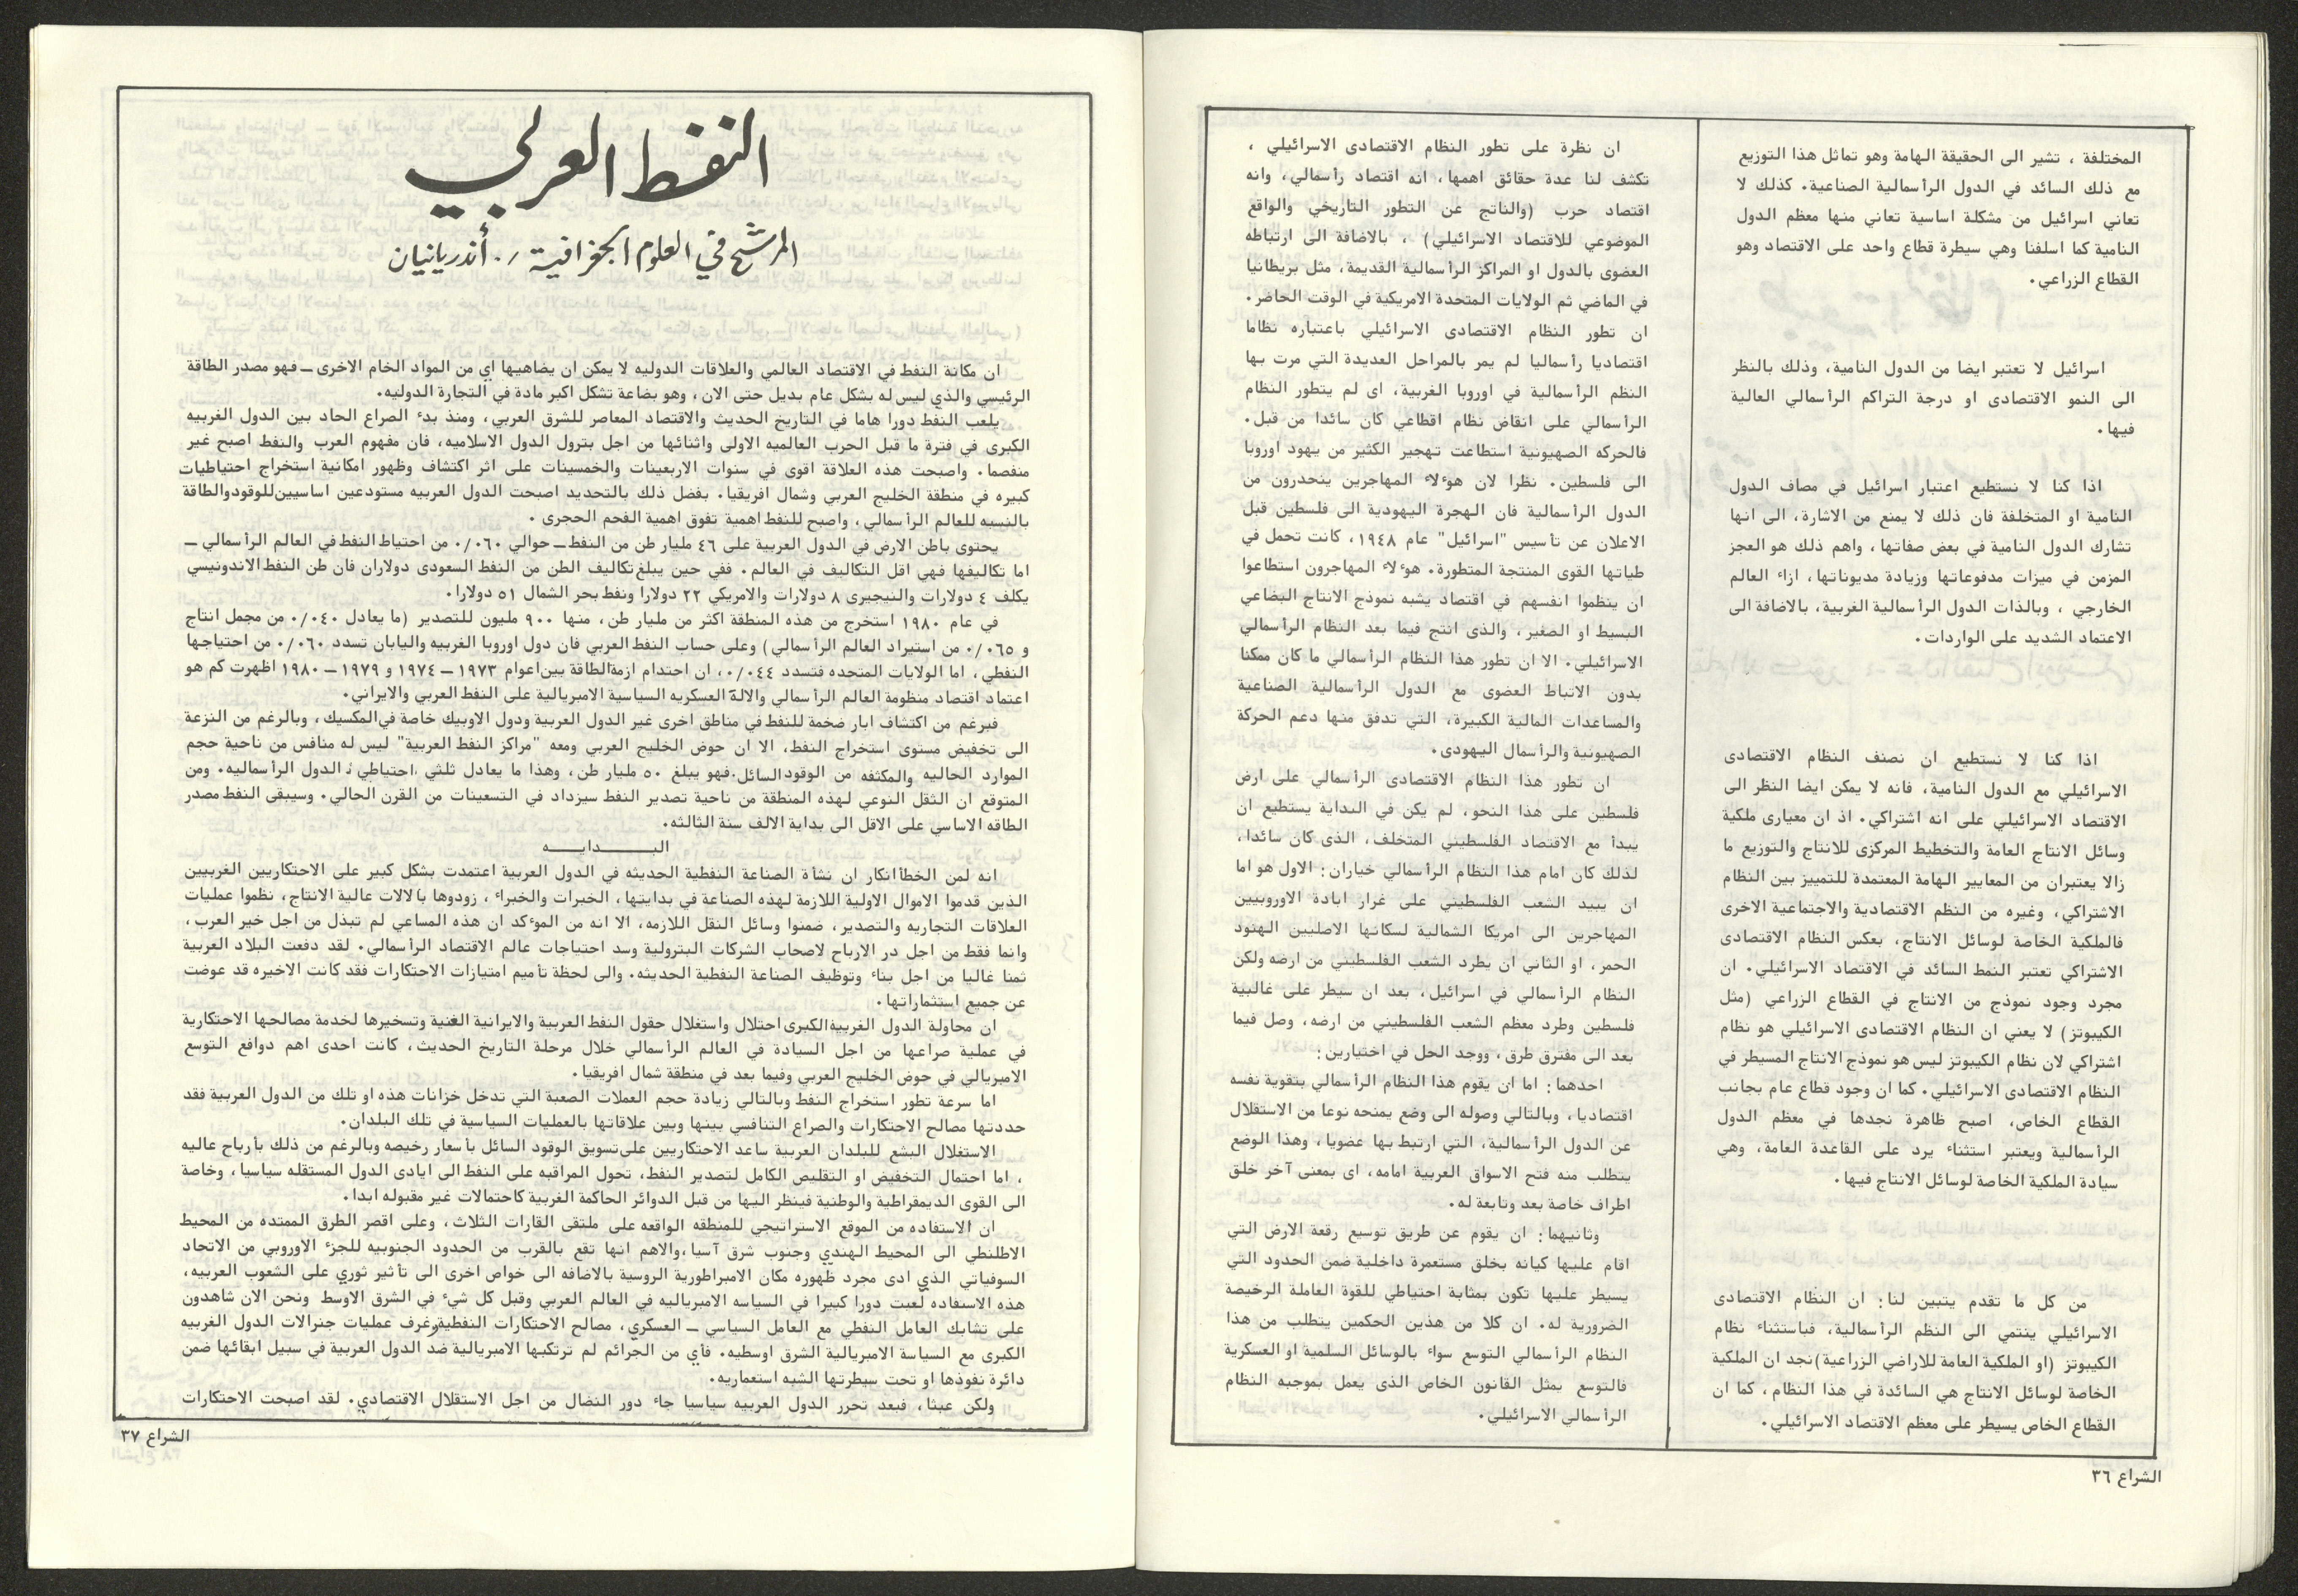 المختلفة ، تشير الى الحقيقة الهامة وهو تماثل هذا التوزيع
مع ذلك السائد في الدول الرأسمالية الصناعية. كذلك لا
تعاني اسرائيل من مشكلة اساسية تعاني منها معظم الدول
النامية كما اسلفنا وهي سيطرة قطاع واحد على الاقتصاد وهو
القطاع الزراعي.
اسرائيل لا تعتبر ايضا من الدول النامية، وذلك بالنظر
الى النمو الاقتصادى او درجة التراكم الرأسمالي العالية
فيها.
اذا كنا لا نستطيع اعتبار اسرائيل في مصاف الدول
النامية او المتخلفة فان ذلك لا يمنع من الاشارة، الى انها
تشارك الدول النامية في بعض صفاتها، واهم ذلك هو العجز
المزمن في ميزات مدفوعاتها وزيادة مديوناتها، ازاء العالم
الخارجي ، وبالذات الدول الرأسمالية الغربية، بالاضافة الى
الاعتماد الشديد على الواردات.
اذا كنا لا نستطيع ان نصنف النظام الاقتصادى
الاسرائيلي مع الدول النامية، فانه لا يمكن ايضا النظر الى
الاقتصاد الاسرائيلي على انه اشتراكي. اذ ان معيارى ملكية
وسائل الانتاج العامة والتخطيط المركزى للانتاج والتوزيع ما
زالا يعتبران من المعايير الهامة المعتمدة للتمييز بين النظام
الاشتراكي، وغيره من النظم الاقتصادية والاجتماعية الاخرى
فالملكية الخاصة لوسائل الانتاج، بعكس النظام الاقتصادى
الاشتراكي تعتبر النمط السائد في الاقتصاد الاسرائيلي. ان
مجرد وجود نموذج من الانتاج في القطاع الزراعي (مثل
الكيبوتز) لا يعني ان النظام الاقتصادى الاسرائيلي هو نظام
اشتراكي لان نظام الكيبوتز ليس هو نموذج الانتاج المسيطر في
النظام الاقتصادى الاسرائيلي. كما ان وجود قطاع عام بجانب
القطاع الخاص، اصبح ظاهرة نجدها في معظم الدول
الرأسمالية ويعتبر استثناء يرد على القاعدة العامة، وهي
سيادة الملكية الخاصة لوسائل الانتاج فيها.
من كل ما تقدم يتبين لنا: ان النظام الاقتصادى
الاسرائيلي ينتمي الى النظم الرأسمالية، فباستثناء نظام
الكيبوتز (او الملكية العامة للاراضي الزراعية) نجد ان الملكية
الخاصة لوسائل الانتاج هي السائدة في هذا النظام، كما ان
القطاع الخاص يسيطر على معظم الاقتصاد الاسرائيلي.
ان نظرة على تطور النظام الاقتصادى الاسرائيلي ،
تكشف لنا عدة حقائق اهمها، انه اقتصاد رأسمالي، وانه
اقتصاد حرب (والناتج عن التطور التاريخي والواقع
الموضوعي للاقتصاد الاسرائيلي) ، بالاضافة الى ارتباطه
العضوى بالدول او المراكز الرأسمالية القديمة، مثل بريطانيا
في الماضي ثم الولايات المتحدة الامريكية في الوقت الحاضر.
ان تطور النظام الاقتصادى الاسرائيلي باعتباره نظاما
اقتصاديا رأسماليا لم يمر بالمراحل العديدة التي مرت بها
النظم الرأسمالية في اوروبا الغربية، اى لم يتطور النظام
الرأسمالي على انقاض نظام اقطاعي كان سائدا من قبل.
فالحركه الصهيونية استطاعت تهجير الكثير من يهود اوروبا
الى فلسطين. نظرا لان هوءلاء المهاجرين ينحدرون من
الدول الرأسمالية فان الهجرة اليهودية الى فلسطين قبل
الاعلان عن تأسيس "اسرائيل" عام ١٩٤٨، كانت تحمل في
طياتها القوى المنتجة المتطورة. هوءلاء المهاجرون استطاعوا
ان ينظموا انفسهم في اقتصاد يشبه نموذج الانتاج البضاعي
البسيط او الصغير، والذى انتج فيما بعد النظام الرأسمالي
الاسرائيلي. الا ان تطور هذا النظام الرأسمالي ما كان ممكنا
بدون الاتباط العضوى مع الدول الرأسمالية الصناعية
والمساعدات المالية الكبيرة، التي تدفق منها دعم الحركة
الصهيونية والرأسمال اليهودى.
ان تطور هذا النظام الاقتصادى الرأسمالي على ارض
فلسطين على هذا النحو، لم يكن في البداية يستطيع ان
يبدأ مع الاقتصاد الفلسطيني المتخلف، الذى كان سائدا،
لذلك كان امام هذا النظام الرأسمالي خياران: الاول هو اما
ان يبيد الشعب الفلسطيني على غرار ابادة الاوروبيين
المهاجرين الى امريكا الشمالية لسكانها الاصليين الهنود
الحمر، او الثاني ان يطرد الشعب الفلسطيني من ارضه ولكن
النظام الرأسمالي في اسرائيل، بعد ان سيطر على غالبية
فلسطين وطرد معظم الشعب الفلسطيني من ارضه، وصل فيما
بعد الى مفترق طرق، ووجد الحل في اختيارين:
احدهما: اما ان يقوم هذا النظام الرأسمالي بتقوية نفسه
اقتصاديا، وبالتالي وصوله الى وضع يمنحه نوعا من الاستقلال
عن الدول الرأسمالية، التي ارتبط بها عضويا، وهذا الوضع
يتطلب منه فتح الاسواق العربية امامه، اى بمعنى آخر خلق
اطراف خاصة بعد وتابعة له.
وثانيهما: ان يقوم عن طريق توسيع رقعة الارض التي
اقام عليها كيانه بخلق مستعمرة داخلية ضمن الحدود التي
يسيطر عليها تكون بمثابة احتياطي للقوة العاملة الرخيصة
الضرورية له. ان كلا من هذين الحكمين يتطلب من هذا
النظام الرأسمالي التوسع سواء بالوسائل السلمية او العسكرية
فالتوسع يمثل القانون الخاص الذى يعمل بموجبه النظام
الرأسمالي الاسرائيلي.
الشراع ٣٦
النفط العربي
المرشح في العلوم الجغرافية ر. أندريانيان
ان مكانة النفط في الاقتصاد العالمي والعلاقات الدوليه لا يمكن ان يضاهيها اي من المواد الخام الاخرى ــ فهو مصدر الطاقة
الرئيسي والذي ليس له بشكل عام بديل حتى الان ، وهو بضاعة تشكل اكبر مادة في التجارة الدوليه.
يلعب النفط دورا هاما في التاريخ الحديث والاقتصاد المعاصر للشرق العربي، ومنذ بدء الصراع الحاد بين الدول الغربيه
الكبرى في فترة ما قبل الحرب العالميه الاولى واثنائها من اجل بترول الدول الاسلاميه، فان مفهوم العرب والنفط اصبح غير
منفصما. واصبحت هذه العلاقة اقوى في سنوات الاربعينات والخمسينات على اثر اكتشاف وظهور امكانية استخراج احتياطيات
كبيره في منطقة الخليج العربي وشمال افريقيا. بفضل ذلك بالتحديد اصبحت الدول العربيه مستودعين اساسيين للوقود والطاقة
بالنسبه للعالم الرأسمالي، واصبح للنفط اهمية تفوق اهمية الفحم الحجرى .
يحتوى باطن الارض في الدول العربية على ٤٦ مليار طن من النفط ــ حوالي ٠/٠٦٠ من احتياط النفط في العالم الرأسمالي ــ
اما تكاليفها فهي اقل التكاليف في العالم. ففي حين يبلغ تكاليف الطن من النفط السعودى دولاران فان طن النفط الاندونيسي
يكلف ٤ دولارات والنيجيرى ٨ دولارات والامريكي ٢٢ دولارا ونفط بحر الشمال ٥١ دولارا.
في عام ١٩٨٠ استخرج من هذه المنطقة اكثر من مليار طن، منها ٩٠٠ مليون للتصدير (ما يعادل ٠/٠٤٠ من مجمل انتاج
و ٠/٠٦٥ من استيراد العالم الرأسمالي) وعلى حساب النفط العربي فان دول اوروبا الغربيه واليابان تسدد ٠/٠٦٠ من احتياجها
النفطي، اما الولايات المتحده فتسدد ٠/٠٤٤، ان احتدام ازمة الطاقة بين اعوام ١٩٧٣ ــ ١٩٧٤ و ١٩٧٩ ــ ١٩٨٠ اظهرت كم هو
اعتماد اقتصاد منظومة العالم الرأسمالي والالة العسكريه السياسية الامبريالية على النفط العربي والايراني.
فبرغم من اكتشاف ابار ضخمة للنفط في مناطق اخرى غير الدول العربية ودول الاوبيك خاصة في المكسيك، وبالرغم من النزعة
الى تخفيض مستوى استخراج النفط، الا ان حوض الخليج العربي ومعه "مراكز النفط العربية" ليس له منافس من ناحية حجم
الموارد الحاليه والمكثفه من الوقود السائل. فهو يبلغ ٥٠ مليار طن، وهذا ما يعادل ثلثي احتياطي الدول الرأسماليه. ومن
المتوقع ان الثقل النوعي لهذه المنطقة من ناحية تصدير النفط سيزداد في التسعينات من القرن الحالي. وسيبقى النفط مصدر
الطاقه الاساسي على الاقل الى بداية الالف سنة الثالثه.
البــــــدايــــه
انه لمن الخطأ انكار ان نشأة الصناعة النفطية الحديثه في الدول العربية اعتمدت بشكل كبير على الاحتكاريين الغربيين
الذين قدموا الاموال الاولية اللازمة لهذه الصناعة في بدايتها، الخبرات والخبراء ، زودوها بآلالات عالية الانتاج، نظموا عمليات
العلاقات التجاريه والتصدير، ضمنوا وسائل النقل اللازمه، الا انه من الموءكد ان هذه المساعي لم تبذل من اجل خير العرب،
وانما فقط من اجل در الارباح لاصحاب الشركات البترولية وسد احتياجات عالم الاقتصاد الرأسمالي. لقد دفعت البلاد العربية
ثمنا غاليا من اجل بناء وتوظيف الصناعة النفطية الحديثه. والى لحظة تأميم امتيازات الاحتكارات فقد كانت الاخيره قد عوضت
عن جميع استثماراتها.
ان محاولة الدول الغربية الكبرى احتلال واستغلال حقول النفط العربية والايرانية الغنية وتسخيرها لخدمة مصالحها الاحتكارية
في عملية صراعها من اجل السيادة في العالم الرأسمالي خلال مرحلة التاريخ الحديث، كانت احدى اهم دوافع التوسع
الامبريالي في حوض الخليج العربي وفيما بعد في منطقة شمال افريقيا.
اما سرعة تطور استخراج النفط وبالتالي زيادة حجم العملات الصعبة التي تدخل خزانات هذه او تلك من الدول العربية فقد
حددتها مصالح الاحتكارات والصراع التنافسي بينها وبين علاقاتها بالعمليات السياسية في تلك البلدان.
الاستغلال البشع للبلدان العربية ساعد الاحتكاريين على تسويق الوقود السائل بأسعار رخيصه وبالرغم من ذلك بأرباح عاليه
، اما احتمال التخفيض او التقليص الكامل لتصدير النفط، تحول المراقبه على النفط الى ايادى الدول المستقله سياسيا، وخاصة
الى القوى الديمقراطية والوطنية فينظر اليها من قبل الدوائر الحاكمة الغربية كاحتمالات غير مقبوله ابدا.
ان الاستفاده من الموقع الاستراتيجي للمنطقه الواقعه على ملتقى القارات الثلاث، وعلى اقصر الطرق الممتده من المحيط
الاطلنطي الى المحيط الهندي وجنوب شرق آسيا، والاهم انها تقع بالقرب من الحدود الجنوبيه للجزء الاوروبي من الاتحاد
السوفياتي الذي ادى مجرد ظهوره مكان الامبراطورية الروسية بالاضافه الى خواص اخرى الى تأثير ثوري على الشعوب العربيه،
هذه الاستفاده لعبت دورا كبيرا في السياسه الامبرياليه في العالم العربي وقبل كل شيء في الشرق الاوسط ونحن الان شاهدون
على تشابك العامل النفطي مع العامل السياسي ــ العسكري، مصالح الاحتكارات النفطية وغرف عمليات جنرالات الدول الغربيه
الكبرى مع السياسة الامبريالية الشرق اوسطيه. فأي من الجرائم لم ترتكبها الامبريالية ضد الدول العربية في سبيل ابقائها ضمن
دائرة نفوذها او تحت سيطرتها الشبه استعماريه.
ولكن عبثا، فبعد تحرر الدول العربيه سياسيا جاء دور النضال من اجل الاستقلال الاقتصادي. لقد اصبحت الاحتكارات
الشراع ٣٧